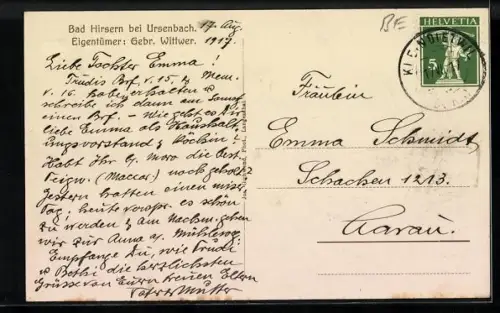 Bad Hirsern bei Ursenbach. 17. Aug.
Eigentümer: Gebr. Wittwer. 1917.
Liebe Tochter Emma!
Trudis Brf v. 15. & Mem.
v. 16. habe erhalten &
schreibe ich dann am
einen Brf. – Wie geht es Dir
liebe Emma als Haushalt-
ungsvorstand & Köchin?
Habt Ihr g. Moro die best.
Teigw. (Maccar.) noch geholt?
Gestern hatten einen
Tag; heute verspr. es schön
zu werden & am Nachm. gehen
wir zur Anna
Empfange Du, wie Trudi
& Bethi die herzlichsten
Grüsse von Euern treuen Eltern
Vater Mutter
BE
HELVETIA
5
Fräulein
Emma Schmidt,
Schachen 1213.
Aarau.